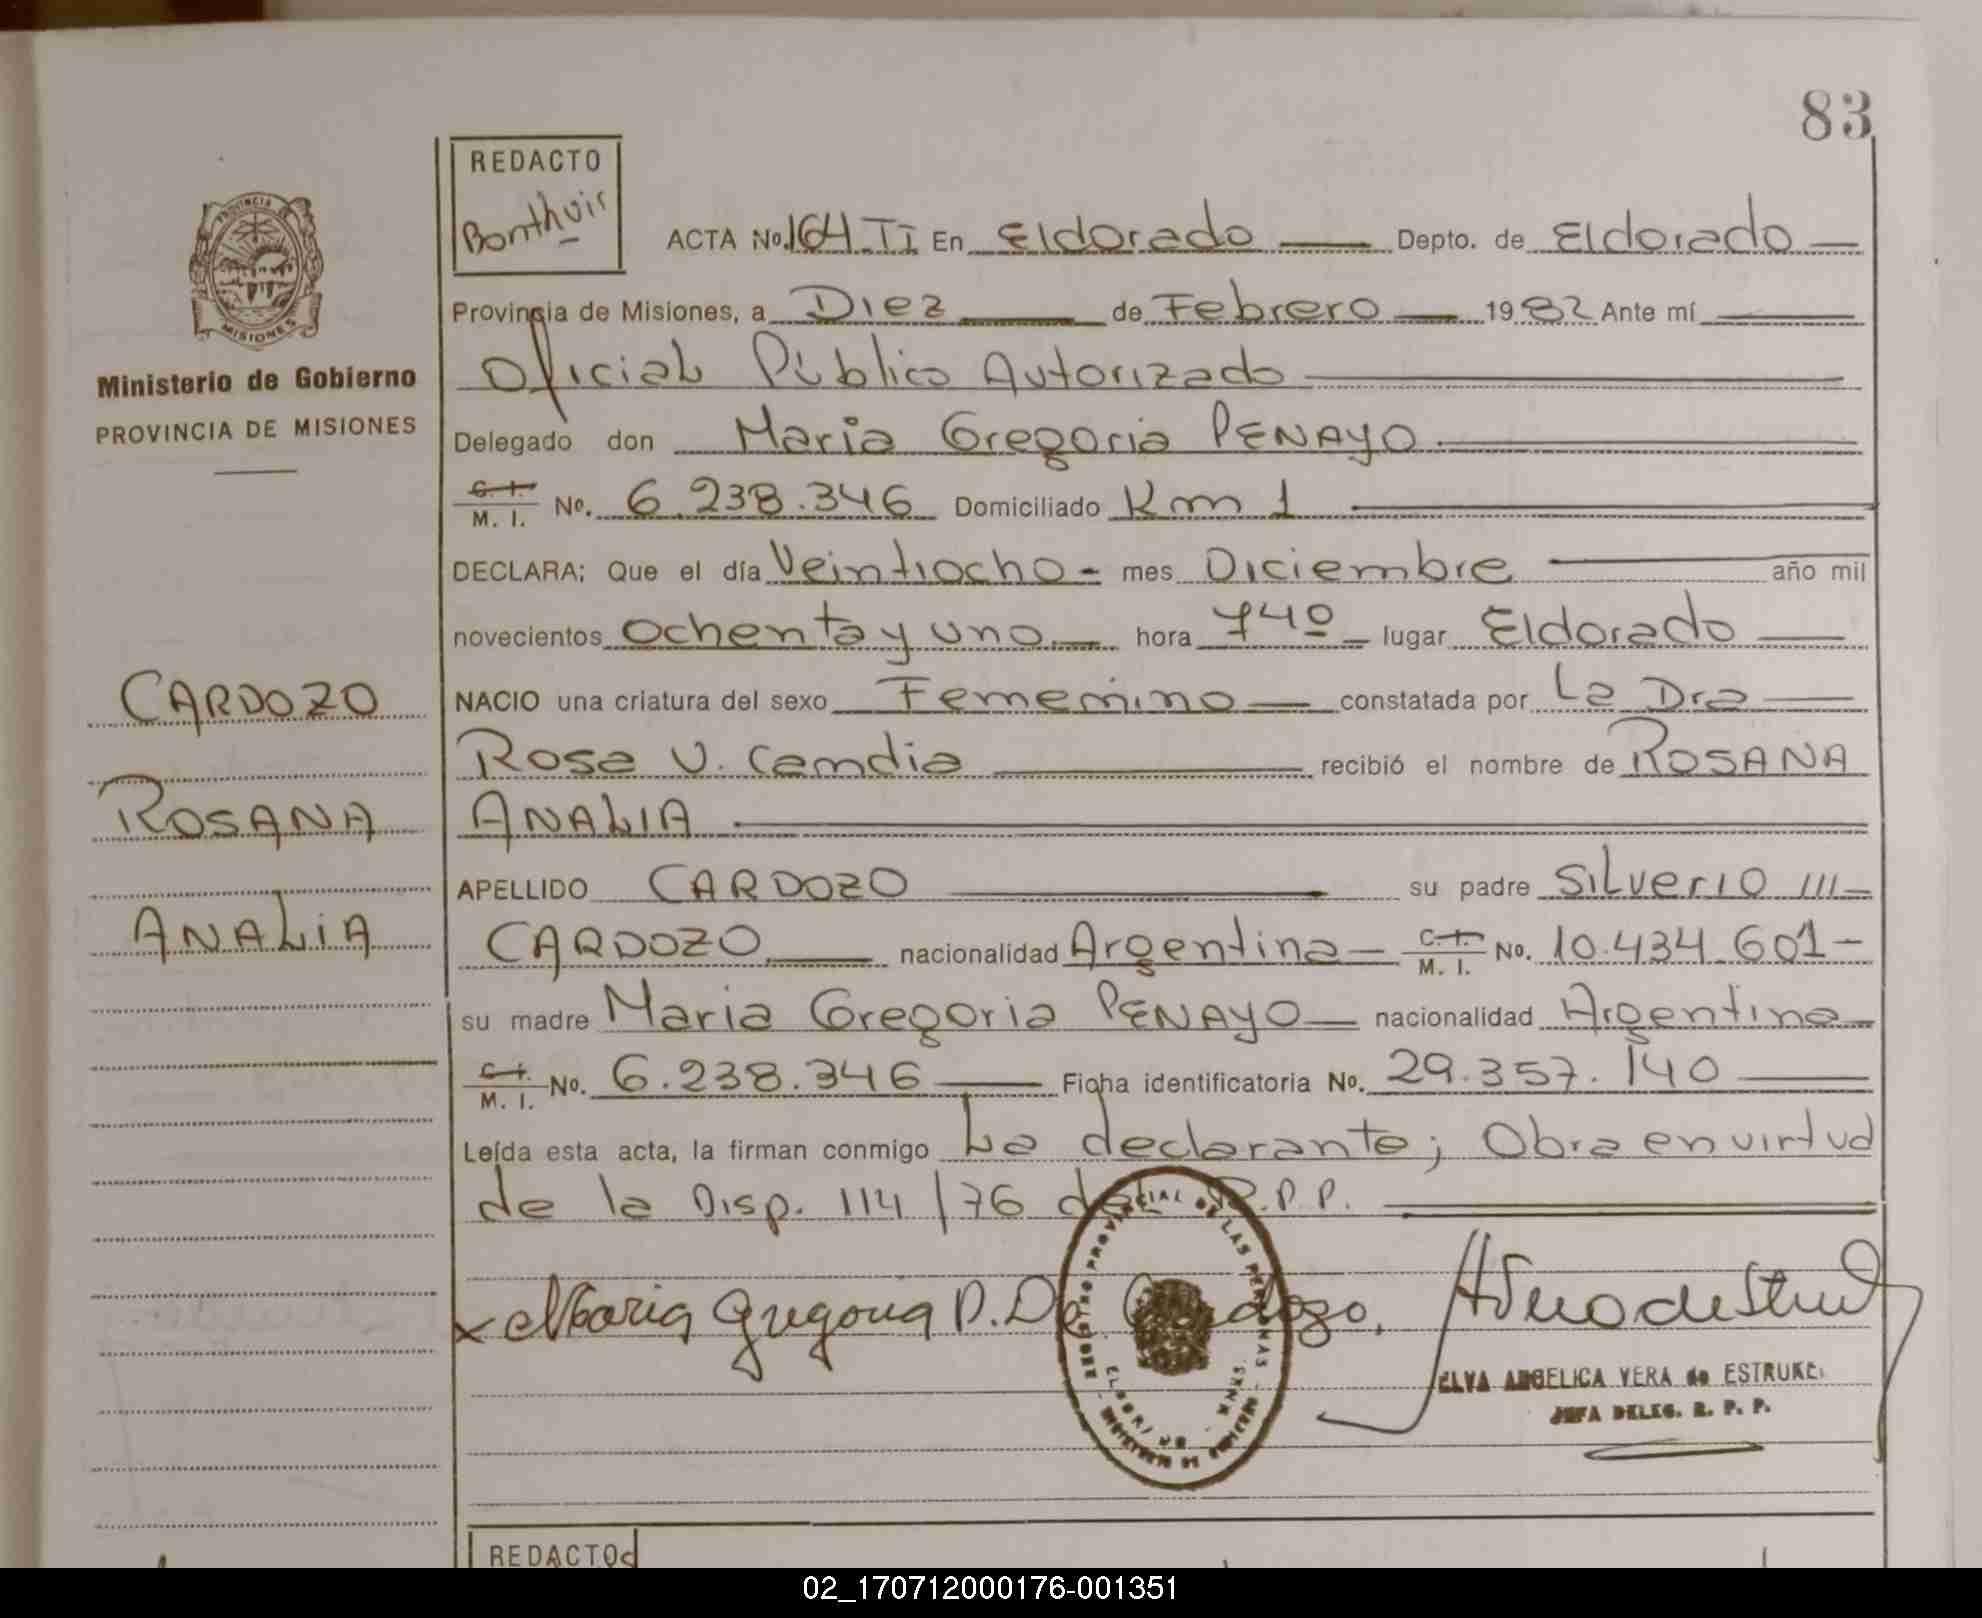 83
REDACTO
Bonthuir
PROVINCIA
MISIONES
Ministerio de Gobierno
PROVINCIA DE MISIONES
ACTA No. 164 TI En Eldorado Depto. de Eldorado
Provincia de Misiones, a Diez de Febrero 1982 Ante mí
Oficial Público Autorizado
Delegado don Maria Gregoria PENAYO
C. I. / M. I. No. 6.238.346 Domiciliado Km 1
DECLARA; Que el día Veintiocho - mes Diciembre año mil
novecientos ochenta y uno hora 7 4º lugar Eldorado
CARDOZO
NACIO una criatura del sexo Femenino constatada por La Dra
Rosa V. Candia recibió el nombre de ROSANA
ROSANA
ANALIA
APELLIDO CARDOZO su padre Silverio ///
ANALIA
CARDOZO nacionalidad Argentina - C. I. / M. I. No. 10.434.601-
su madre Maria Gregoria PENAYO nacionalidad Argentina
C. I. / M. I. No. 6.238.346 Ficha identificatoria No. 29.357.140
Leída esta acta, la firman conmigo La declarante; Obra en virtud
de la Disp. 114/76 del R.P.P.
x Maria Gregoria P. De Cardozo,
REGISTRO PROVINCIAL DE LAS PERSONAS
ELVA ANGELICA VERA de ESTRUKEL
JEFA DELEG. R. P. P.
REDACTO
02_170712000176-001351